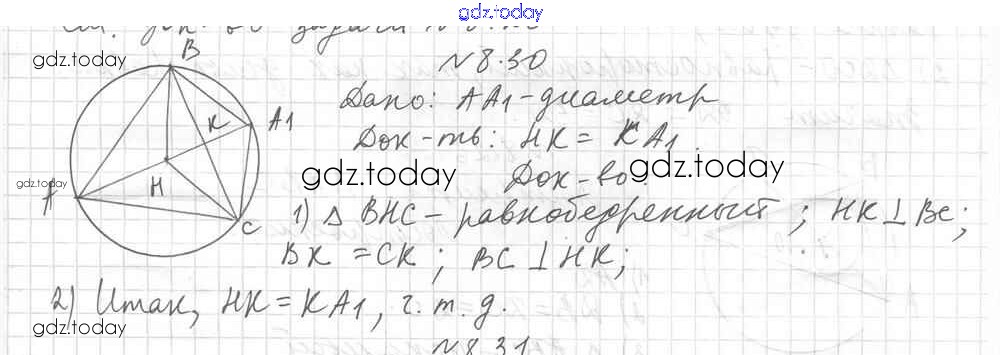 gdz.today
задачи
gdz.today
B
№8.30
K
A1
Дано: AA1-диаметр
Док-ть: HK = KA1.
gdz.today
gdz.today
gdz.today
A
H
Док-во:
C
1) △ BHC - равнобедренный; HK⊥BC;
BK = CK; BC⊥HK;
2) Итак, HK = KA1, ч.т.д.
gdz.today
№8.31